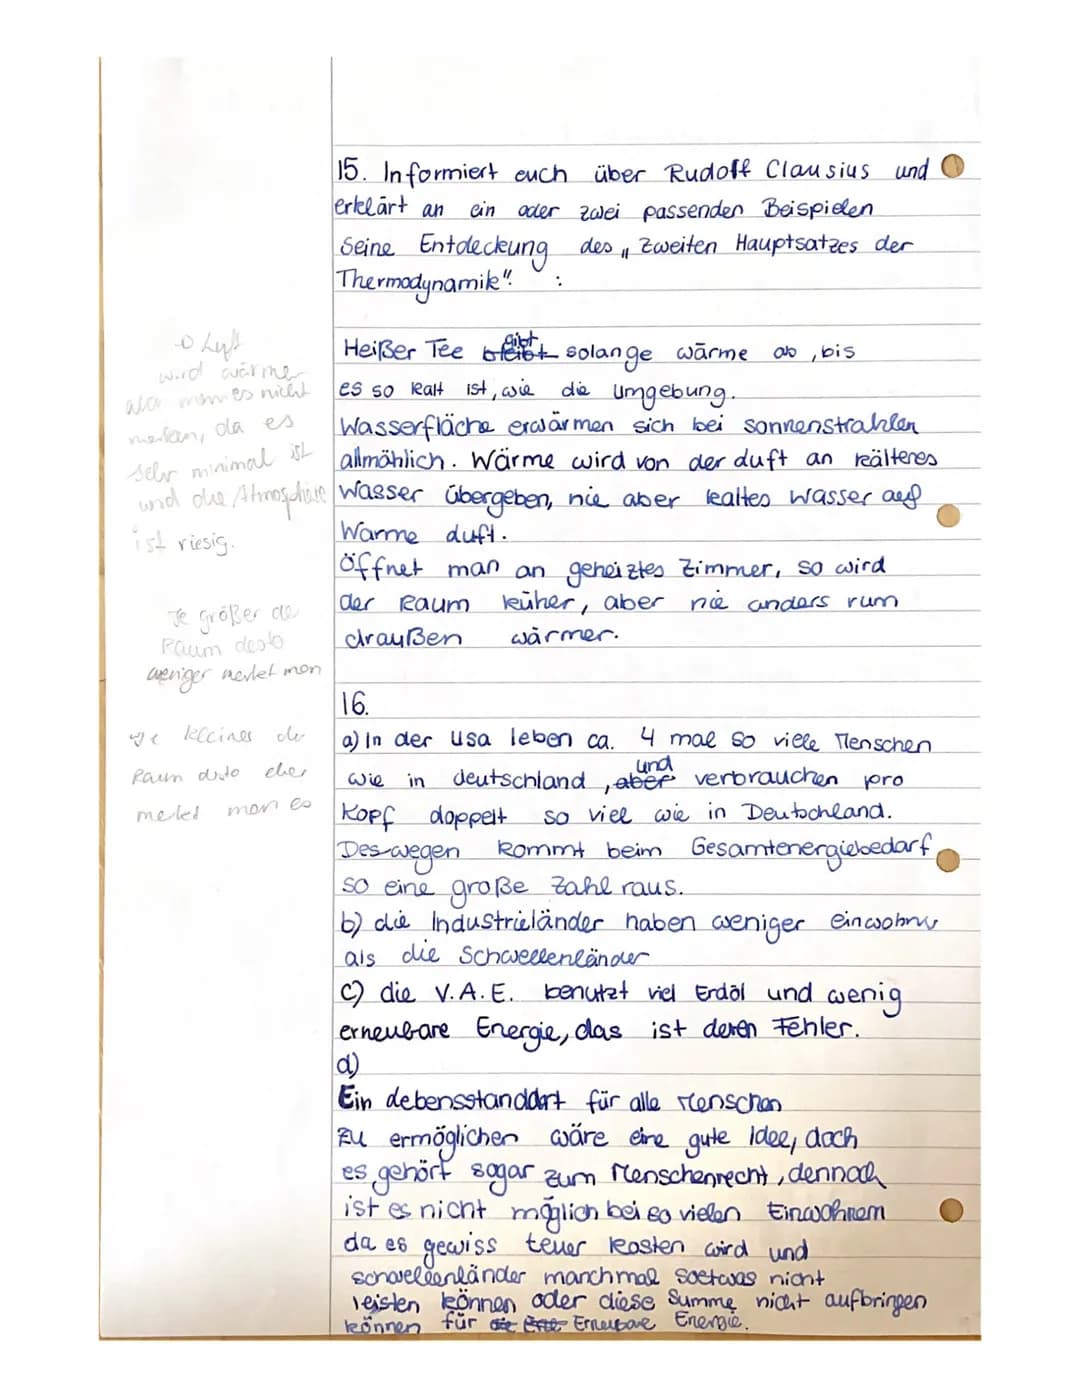 15. Informiert euch über Rudolf Clausius und
erklärt an ein oder zwei passenden Beispielen
seine Entdeckung des „Zweiten Hauptsatzes der
Thermodynamik". :
Heißer Tee bleibt gibt solange wärme ab, bis
es so kalt ist, wie die Umgebung.
Wasserfläche erwärmen sich bei sonnenstrahlen
allmählich. Wärme wird von der Luft an kälteres
Wasser übergeben, nie aber kaltes Wasser auf
Warme Luft.
Öffnet man an geheiztes Zimmer, so wird
der Raum küher, aber nie anders rum
draußen wärmer.
→ Luft
wird wärmer
aber man es nicht
merken, da es
sehr minimal ist
und die Atmosphäre
ist riesig.
Je größer der
Raum desto
weniger merket man
Je kleines der
Raum desto eher
merket man es
16.
a) In der Usa leben ca. 4 mal so viele Menschen
wie in deutschland, aber und verbrauchen pro
Kopf doppelt so viel wie in Deutschland.
Deswegen kommt beim Gesamtenergiebedarf
so eine große Zahl raus.
b) die Industrieländer haben weniger einwohner
als die Schwellenländer
c) die V.A.E. benutzt viel Erdöl und wenig
erneubare Energie, das ist deren Fehler.
d)
Ein Lebensstandart für alle Menschen
zu ermöglichen wäre eine gute Idee, doch
es gehört sogar zum Menschenrecht, dennoch
ist es nicht möglich bei so vielen Einwohnern
da es gewiss teuer kosten wird und
schwellenländer manchmal soetwas nicht
leisten können oder diese Summe nicht aufbringen
können für die Erne Erneubare Energie.